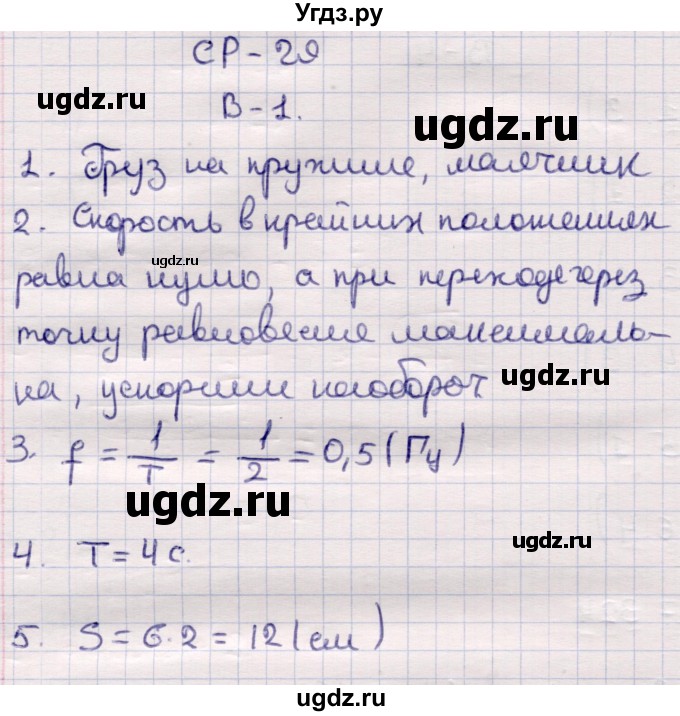 Угдз.ру
СР - 29
ugdz.ru
ugdz.ru
В - 1.
1. Груз на пружине, маятник
2. Скорость в крайних положениях
ugdz.ru
равна нулю, а при переходе через
точку равновесия максималь-
на, ускорение наоборот
ugdz.ru
3. f = 1/T = 1/2 = 0,5 (Гц)
ugdz.ru
ugdz.ru
4. T = 4 с.
5. S = 6 · 2 = 12 (см)
ugdz.ru